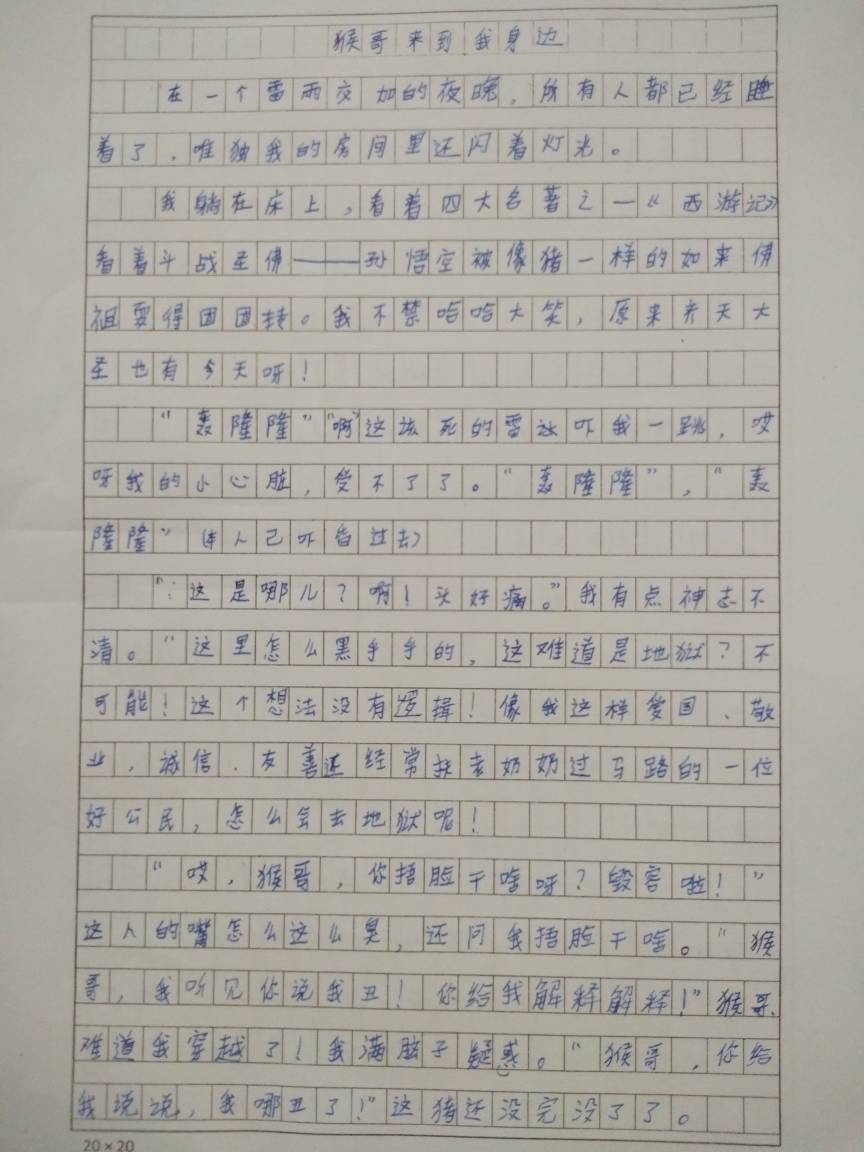 猴哥来到我身边
在一个雷雨交加的夜晚，所有人都已经睡
着了，唯独我的房间里还闪着灯光。
我躺在床上，看着四大名著之一《西游记》
看着斗战圣佛——孙悟空被像猪一样的如来佛
祖耍得团团转。我不禁哈哈大笑，原来齐天大
圣也有今天呀！
“轰隆隆”“啊”这该死的雷达吓我一跳，哎
呀我的小心脏，受不了了。“轰隆隆”，“轰
隆隆”（本人已吓昏过去）
“：这是哪儿？啊！头好痛。”我有点神志不
清。“这里怎么黑乎乎的，这难道是地狱？不
可能！这个想法没有逻辑！像我这样爱国、敬
业，诚信．友善还经常扶老奶奶过马路的一位
好公民，怎么会去地狱呢！
“哎，猴哥，你捂脸干啥呀？毁容啦！”
这人的嘴怎么这么臭，还问我捂脸干啥。“猴
哥，我听见你说我丑！你给我解释解释！”猴哥、
难道我穿越了！我满脑子疑惑。“猴哥，你给
我说说，我哪丑了！”这猪还没完没了了。
20×20